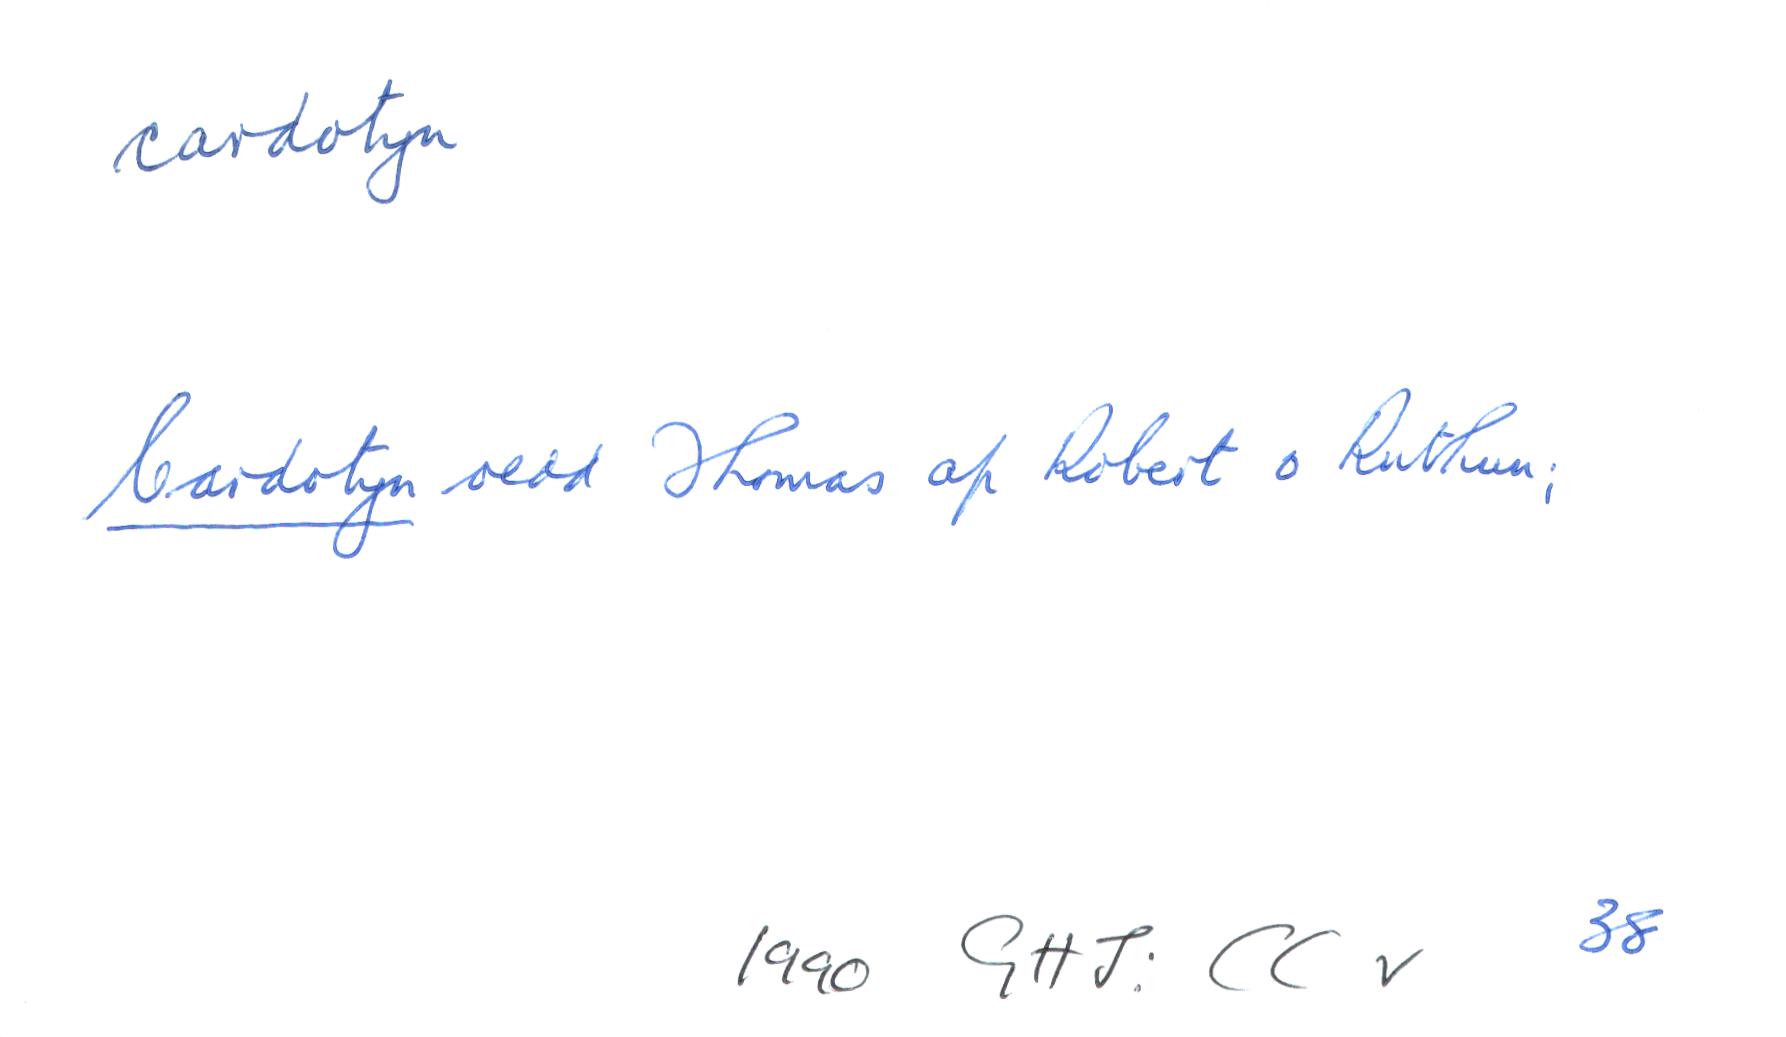 cardotyn
Cardotyn oedd Thomas ap Robert o Ruthun;
1990 GHJ: CC v 38